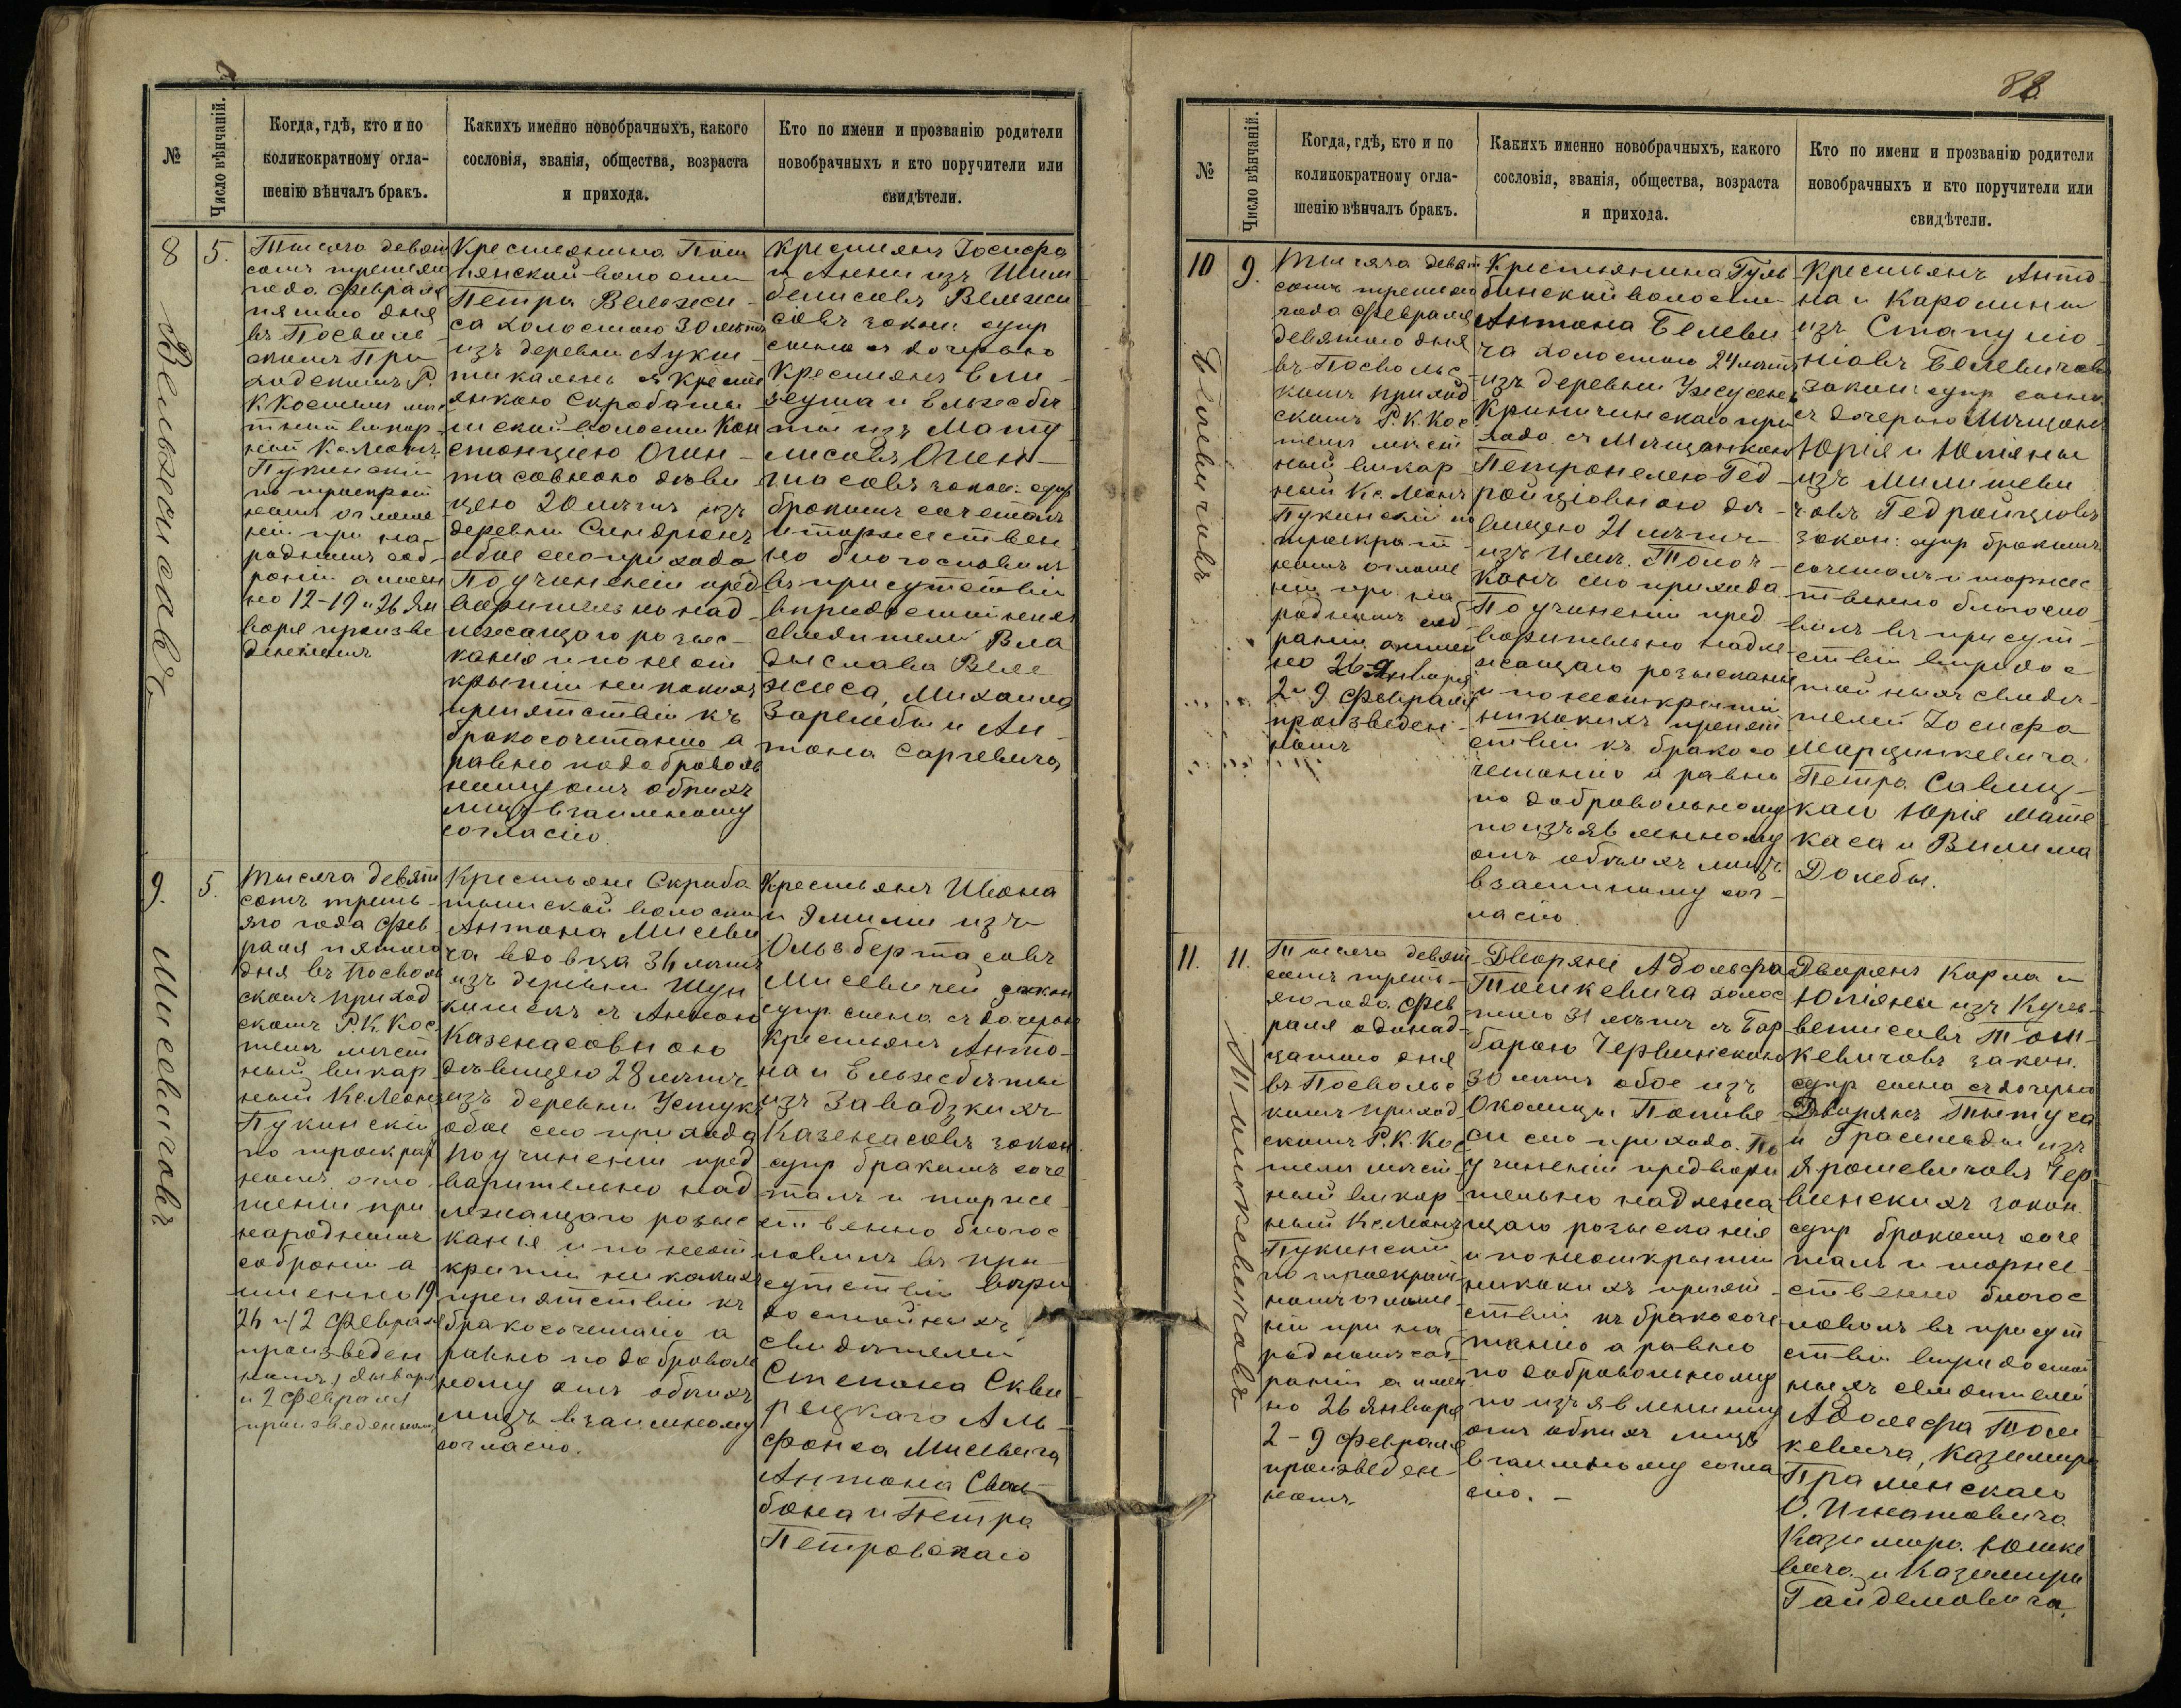 88
№
Число вѣнчаній.
Когда, гдѣ, кто и по
коликократному огла-
шенію вѣнчалъ бракъ.
Какихъ именно новобрачныхъ, какого
сословія, званія, общества, возраста
и прихода.
Кто по имени и прозванію родители
новобрачныхъ и кто поручители или
свидѣтели.
8
5.
Вельжисовъ
Тысяча девят
сотъ третьяго
года Февраля
пятого дня
въ Посволь
скомъ При
ходскомъ Р.
К Костелѣ мѣс
тный викар
ный Кс Леонъ
Пукинскій
по троекрат
номъ оглаше
ніи при на
родномъ соб-
раніи а имен
но 12-19 и 26 Ян
варя произве
денномъ
Крестьянина Пом
пянской волости
Петра Вельжи-
са холостого 30 лѣтъ
изъ деревни Лукш
тикаянь съ Кресть
янкою Скробаты
шской волости Кон
станціею Огин-
тасовною дѣви
цею 20 лѣтъ изъ
деревни Синдріонъ
обое сего прихода
По учиненіи пред
варительно над
лежащаго розыс-
канія и по не от
крытіи никакихъ
препятствій къ
бракосочетанію а
равно по доброволь
ному отъ обоихъ
лицъ взаимному
согласію.
крестьянъ Іосифа
и Анны изъ Шим
белисовъ Вельжи
совъ закон: супр
сына съ дочерью
Крестьянъ Ели
зеуша и Ельжбѣ
ты изъ Мату
лисовъ Огин-
тасовъ закон: супр
бракомъ сочеталъ
и торжествен
но благословилъ
въ присутствіи
вѣридостойныхъ
свидѣтелей Вла
дыслава Вель
жиса, Михаила
Зарембы и Ан
тона Саргевича
9.
5.
Мисевичовъ
Тысяча девят
сотъ треть-
яго года Фев
раля пятого
дня въ Посволь
скомъ приход
скомъ Р. К. Кос
телѣ мѣст
ный викар
ный Кс Леонъ
Пукинскій
по троекрат
номъ огла
шеніи при
народномъ
собраніи а
именно 19
26 и 2 Февраля
произведен
номъ, Января
и 2 Февраля
произведенномъ
Крестьяни Скроба
тышской волости
Антона Мисеви
ча вдовца 36 лѣтъ
изъ деревни Шун
кишекъ съ Анною
Казенасовною
дѣвицею 28 лѣтъ
изъ деревни Устукъ
обое сего прихода
По учиненіи пред
варительно над
лежащаго розыс
канія и по неот
крытіи никакихъ
препятствій къ
бракосочетанію а
равно по доброволь
ному отъ обоихъ
лицъ взаимному
согласію.
Крестьянъ Ивана
и Эмиліи изъ
Ольбертасовъ
Мисевичей закон
супр сына съ дочерью
Крестьянъ Анто-
на и Ельжбѣты
изъ Завадзкихъ
Казенасовъ закон
супр бракомъ соче
талъ и торже
ственно благос
ловилъ въ при
сутствіи вѣри
достойныхъ
свидѣтелей
Степана Скви
рецкаго Аль
фонса Мисевича
Антона Сваль
бона и Петра
Петровскаго
№
Число вѣнчаній.
Когда, гдѣ, кто и по
коликократному огла-
шенію вѣнчалъ бракъ.
Какихъ именно новобрачныхъ, какого
сословія, званія, общества, возраста
и прихода.
Кто по имени и прозванію родители
новобрачныхъ и кто поручители или
свидѣтели.
10
9.
Белевичовъ
Тысяча девят
сотъ третьяго
года Февраля
девятого дня
въ Посволь
скомъ приход
скомъ Р. К. Кос
телѣ мѣст
ный викар
ный Кс Леонъ
Пукинскій по
троекрат
номъ оглаше
ніи при на
родномъ соб
раніи а имен
но 26 Января
2 и 9 Февраля
произведен
номъ
Крестьянина Гуль
бинской волости
Антона Белеви
ча холостого 24 лѣтъ
изъ деревни Ужусене
Криничинскаго при
хода съ Мѣщанкою
Петронелею Гед
ройціовною дѣ-
вицею 21 лѣтъ
изъ Имѣн. Толоч-
канъ сего прихода
По учиненіи пред
варительно надле
жащаго розысканія
и по неоткрытіи
никакихъ препят
ствій къ бракосо
четанію а равно
по добровольному
по изъявленному
отъ обоихъ лицъ
взаимному сог-
ласію
Крестьянъ Анто
на и Каролины
изъ Стапулио
ніовъ Белевичовъ
закон: супр сына
съ дочерью Мѣщанъ
Юрія и Юліяны
изъ Милишеви
човъ Гедройціовъ
закон: супр бракомъ
сочеталъ и торжес
твенно благосло
вилъ въ присут-
ствіи вѣридос
тойныхъ свидѣ-
телей Іосифа
Марцинкевича
Петра Савиц-
каго Юрія Мате
каса и Вилима
Долебы.
11.
11.
Тошкевичовъ
Тысяча девят
сотъ треть-
яго года Фев
раля одинад
цатого дня
въ Посволь
скомъ приход
скомъ Р. К. Кос
телѣ мѣст-
ный викар
ный Кс Леонъ
Пукинскій
по троекрат
номъ оглаше
ніи при на
родномъ соб-
раніи а имен
но 26 Января
2-9 Февраля
произведен
номъ
Дворяни Адольфа
Тошкевича холос
того 31 лѣтъ съ Бар
барою Червинскою
30 лѣтъ обое изъ
Околицы Попиве
си сего прихода. По
учиненіи предвари
тельно надлежа
щаго розысканія
и по неоткрытіи
никакихъ препят
ствій къ бракосоче
танію а равно
по добровольному
по изъявленному
отъ обоихъ лицъ
взаимному согла
сію. –
Дворянъ Карла и
Юліяны изъ Кудр-
ветисовъ Тош
кевичовъ закон.
супр сына съ дочерью
Дворянъ Титуса
и Грасильды изъ
Ярошевичовъ Чер
винскихъ закон.
супр бракомъ соче
талъ и торже
ственно благос
ловилъ въ присут
ствіи вѣридостой
ныхъ свидѣтелей
Адольфа Тош
кевича, Казимира
Пралинскаго
О. Игнатовича
Казимира Юшке
вича и Казимира
Гайдемовича.